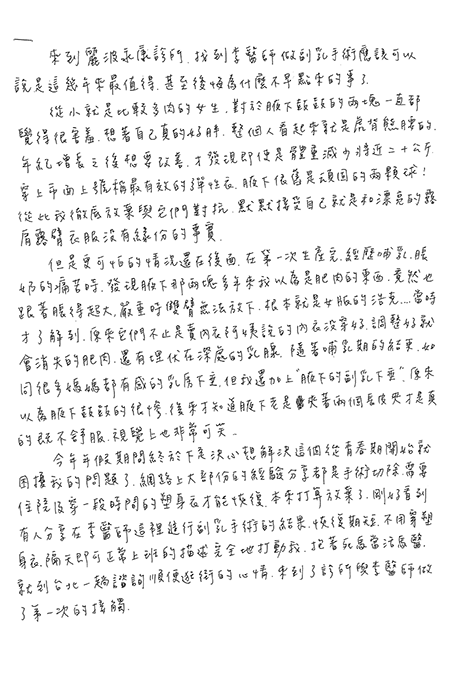 來到麗波永康診所,找到李醫師做副乳手術應該可以
說是這幾年來最值得,甚至後悔為什麼不早點來的事了。
從小就是比較多肉的女生,對於腋下鼓鼓的兩塊一直都
覺得很害羞,想著自己真的好胖,整個人看起來就是虎背熊腰的。
年紀增長之後想要改善,才發現即使是體重減少將近二十公斤,
穿上市面上號稱最有效的彈性衣,腋下依舊是頑固的兩顆球!
從此我徹底放棄與它們對抗,默默接受自己就是和漂亮的露
肩露臂衣服沒有緣份的事實。
但是更可怕的情況還在後面,在第一次生產完,經歷哺乳、脹
奶的痛苦時,發現腋下那兩塊多年來我以為是肥肉的東西,竟然也
跟著脹得超大,嚴重時雙臂無法放下,根本就是女版的浩克....當時
才了解到,原來它們不止是賣內衣阿姨說的內衣沒穿好,調整好就
會消失的肥肉,還有埋伏在深處的乳腺。隨著哺乳期的結束,如
同很多媽媽都有感的乳房下垂,但我還加上"腋下的副乳下垂",原來
以為腋下鼓鼓的很慘,後來才知道腋下老是夾著兩個長皮夾才是真
的既不舒服,視覺上也非常可笑。
今年年假期間終於下定決心想解決這個從青春期開始就
困擾我的問題了,網路上大部份的經驗分享都是手術切除,需要
住院及穿一段時間的塑身衣才能恢復,本來打算放棄了,剛好看到
有人分享在李醫師這裡進行副乳手術的結果,恢復期短,不用穿塑
身衣,隔天即可正常上班的描述完全地打動我,抱著死馬當活馬醫,
就到台北一趟諮詢順便逛街的心情,來到了診所與李醫師做
了第一次的接觸。